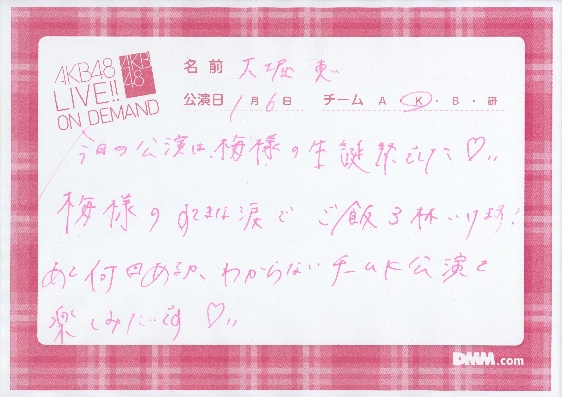 AKB48
LIVE!!
ON DEMAND
AKB
48
名前 大堀恵
公演日 1月6日 チーム A・K・B・研
今日の公演は、梅様の生誕祭でした♡〃
梅様のすてきな涙でご飯3杯いけます!
あと何回あるか、わからないチームK公演を
楽しみたいです♡〃
DMM.com